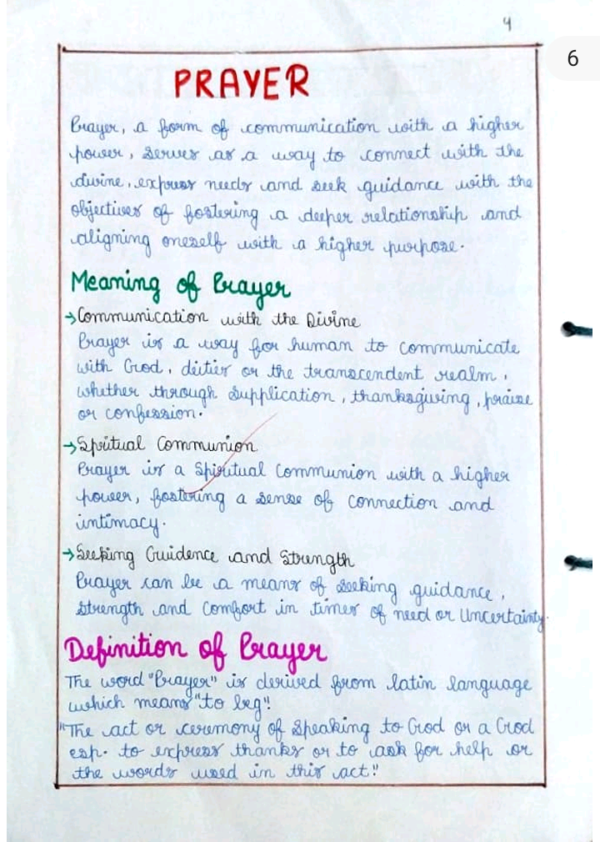 4
6
PRAYER
Prayer, a form of communication with a higher
power, serves as a way to connect with the
divine, express needs and seek guidance with the
objectives of fostering a deeper relationship and
aligning oneself with a higher purpose.
Meaning of Prayer
→ Communication with the Divine
Prayer is a way for human to communicate
with God, dieties or the transcendent realm,
whether through supplication, thanksgiving, praise
or confession.
→ Spritual Communion
Prayer is a Spiritual Communion with a higher
power, fostering a sense of connection and
intimacy.
→ Seeking Guidence and Strength
Prayer can be a means of seeking guidance,
strength and comfort in times of need or Uncertainty.
Definition of Prayer
The word "Prayer" is derived from latin language
which means "to beg".
"The act or ceremony of speaking to God or a God
esp. to express thanks or to ask for help or
the words used in this act."